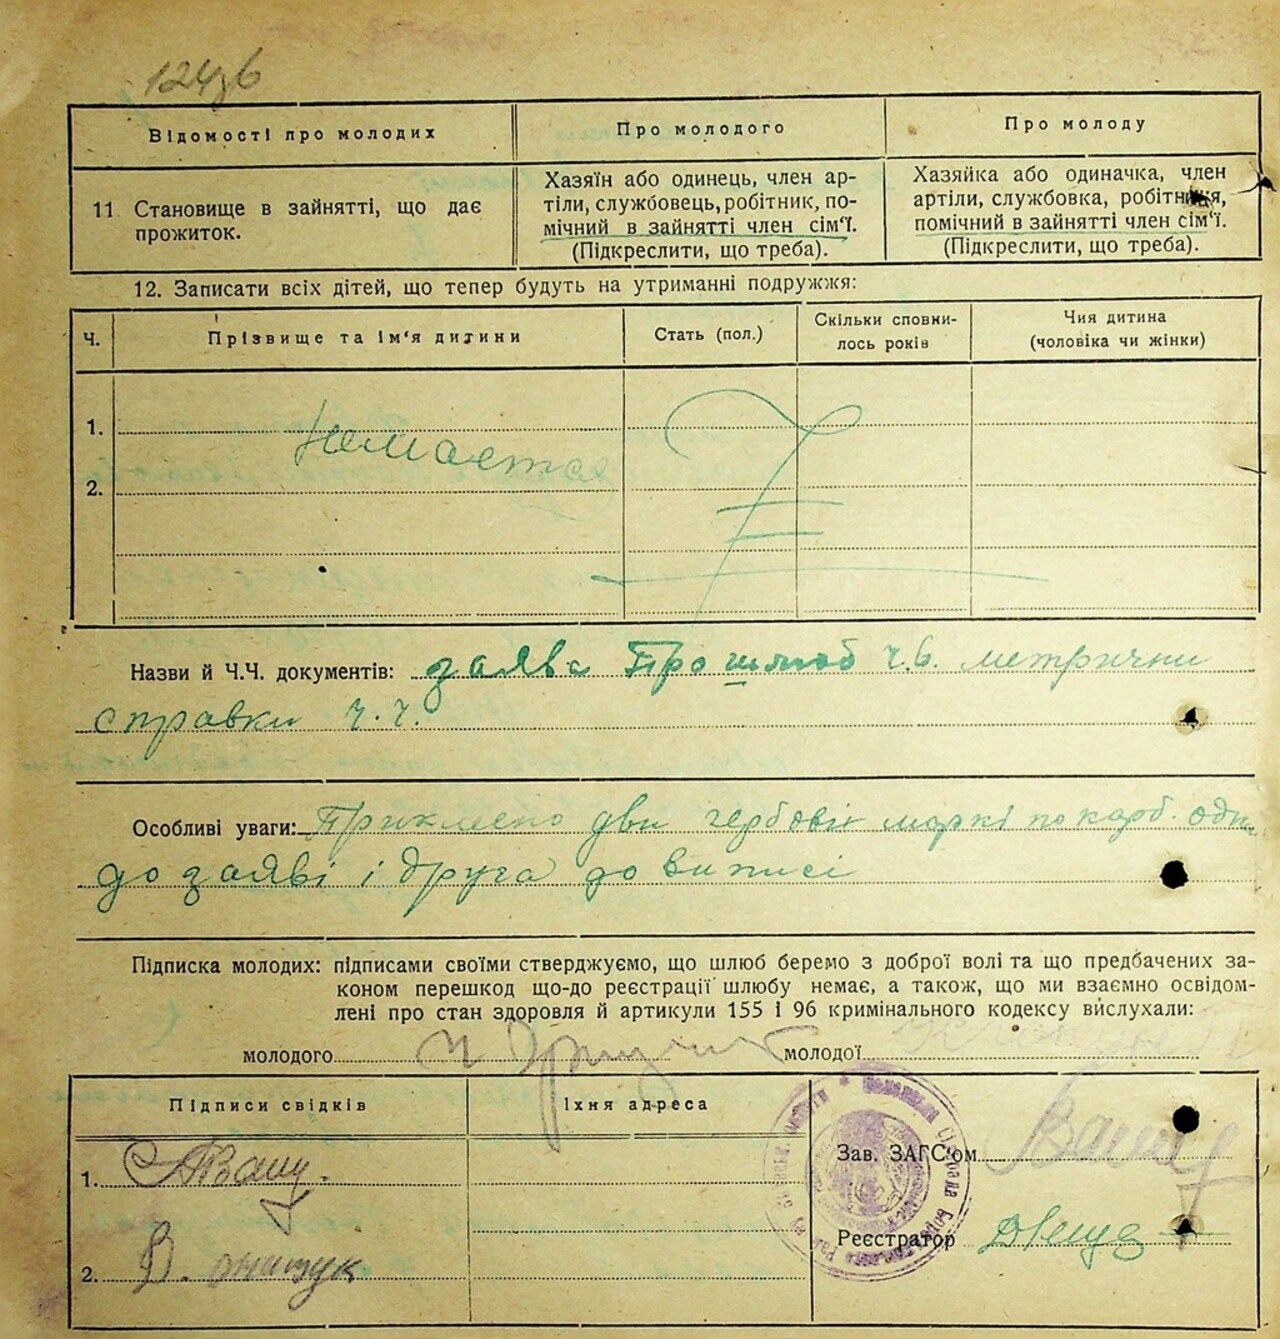 124зв
Відомості про молодих
Про молодого
Про молоду
11 Становище в зайнятті, що дає
прожиток.
Хазяїн або одинець, член ар-
тіли, службовець, робітник, по-
мічний в зайнятті член сім‘ї.
(Підкреслити, що треба).
Хазяйка або одиначка, член
артіли, службовка, робітниця,
помічний в зайнятті член сім‘ї.
(Підкреслити, що треба).
12. Записати всіх дітей, що тепер будуть на утриманні подружжя:
Ч.
Прізвище та ім‘я дитини
Стать (пол.)
Скільки сповни-
лось років
Чия дитина
(чоловіка чи жінки)
1.
Немається
2.
Назви й Ч.Ч. документів: заява про шлюб ч.6. метрични
справки ч.ч.
Особливі уваги: Приклеено дви гербовіи маркі по карб. одна
до заяві і друга до виписі
Підписка молодих: підписами своїми стверджуємо, що шлюб беремо з доброї волі та що предбачених за-
коном перешкод що-до реєстрації шлюбу немає, а також, що ми взаємно освідом-
лені про стан здоровля й артикули 155 і 96 кримінального кодексу вислухали:
молодого
молодої
Підписи свідків
Їхня адреса
1.
2.
Зав. ЗАГС‘ом
Реєстратор